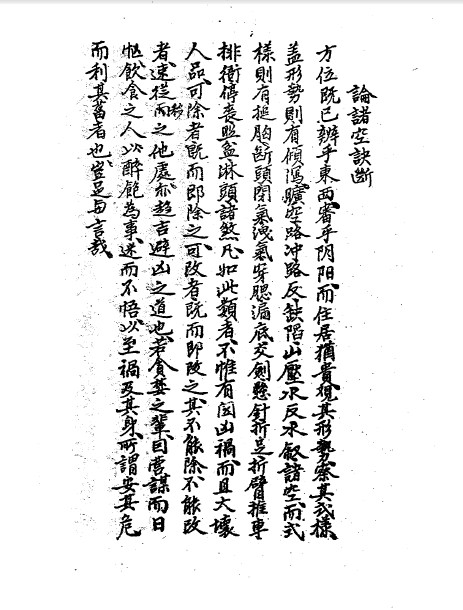 論諸空訣斷
方位既已辨乎東西審乎阴阳而住居猶貴視其形勢察其式樣
盖形勢則有傾瀉曠空路冲路反缺陷山壓水反水釵諸空而式
樣則有搥胸斷頭閉氣洩氣穿腮漏底交劍懸針折足折臂推車
排衙停丧照盆淋頭諸煞凡如此類者不惟有関凶禍而且大壞
人品可除者既而即除之可改者既而即改之其不能除不能改
者速从而移之他處亦趋吉避凶之道也若貪婪之輩日营謀而日
飲食之人以醉飽為事迷而不悟以至禍及其身所謂安其危
而利其菑者也豈足与言哉